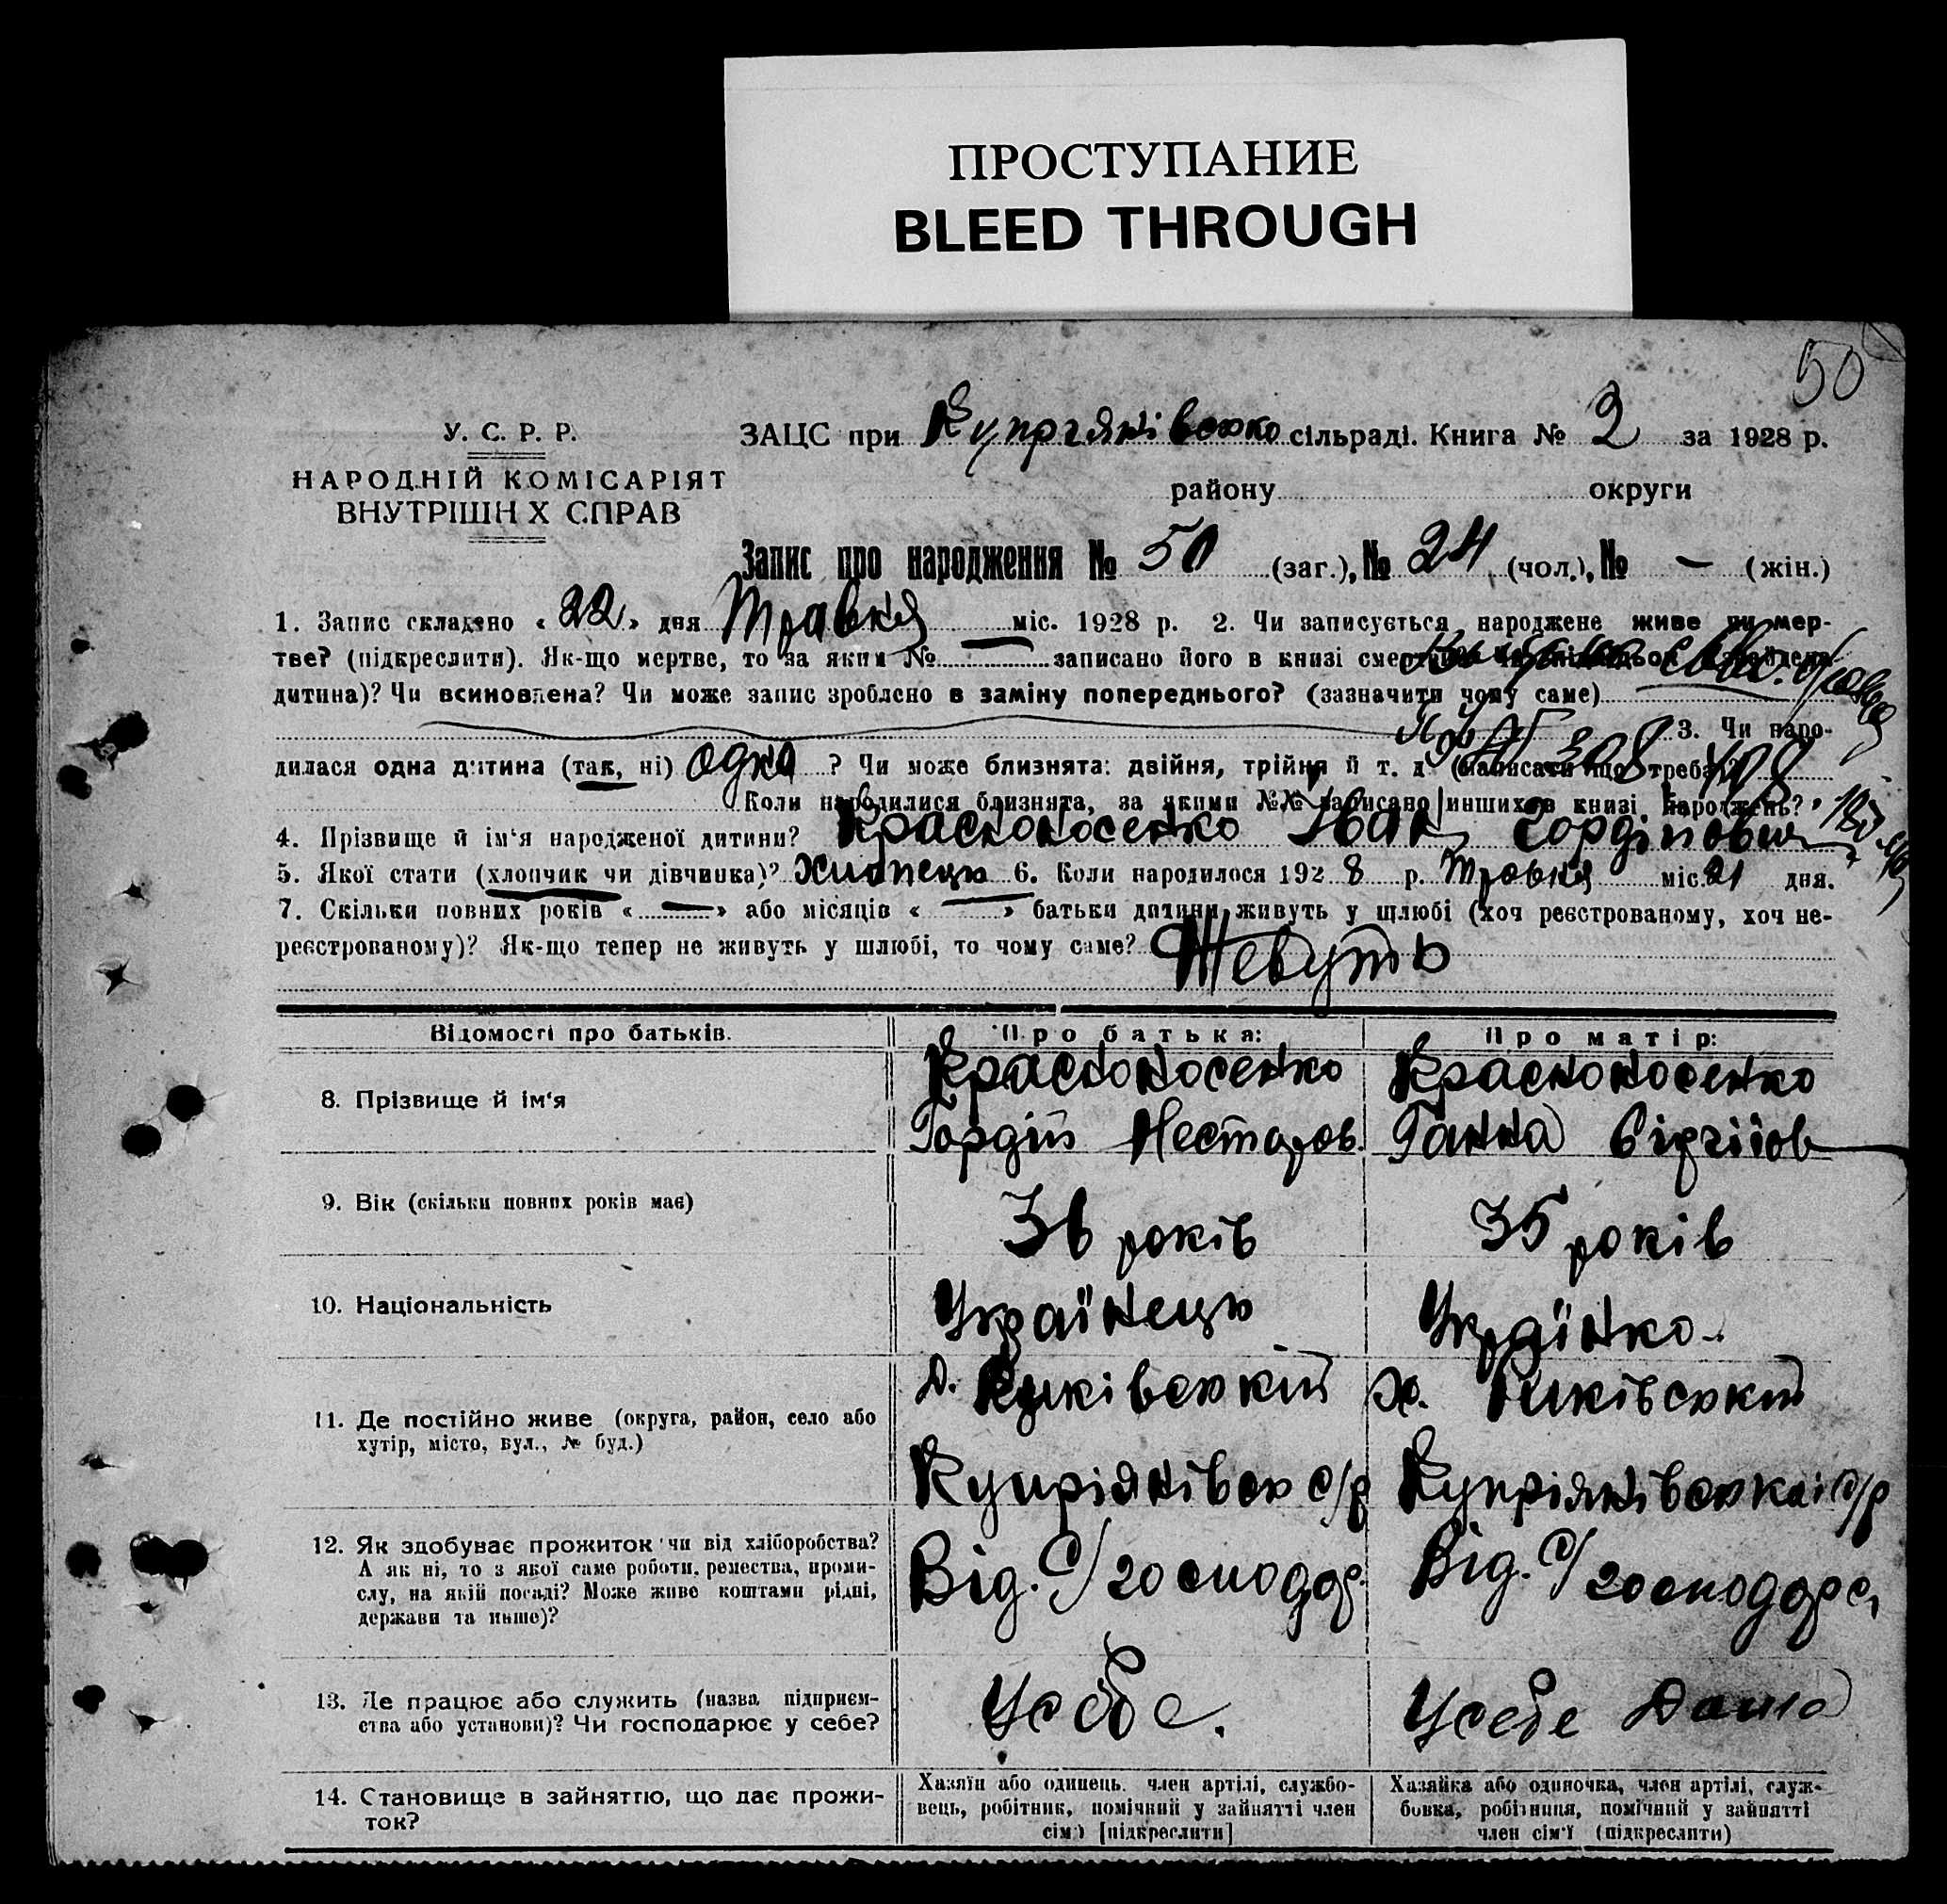 ПРОСТУПАНИЕ
BLEED THROUGH
50
У. С. Р. Р.
НАРОДНІЙ КОМІСАРІЯТ
ВНУТРІШН Х СПРАВ
ЗАЦС при Купріянівсько сільраді. Книга № 2 за 1928 р.
району округи
Запис про народження № 50 (заг.), № 24 (чол.), № — (жін.)
1. Запис складено «22» дня Травня міс. 1928 р. 2. Чи записується народжене живе чи мер-
тве? (підкреслити). Як-що мертве, то за яким № записано його в книзі
дитина)? Чи всиновлена? Чи може запис зроблено в заміну попереднього? (зазначити чому саме)
3. Чи наро-
дилася одна дитина (так, ні) одна ? Чи може близнята: двійня, трійня й т. д. (написати що треба)?
Коли народилися близнята, за якими №№ записано инших в книзі народжень?
4. Прізвище й ім'я народженої дитини? Красноносенко Іван Гордіпович
5. Якої стати (хлопчик чи дівчинка)? Хлопець 6. Коли народилося 1928 р. Травня міс. 21 дня.
7. Скільки повних років «—» або місяців « » батьки дитини живуть у шлюбі (хоч реєстрованому, хоч не-
реєстрованому)? Як-що тепер не живуть у шлюбі, то чому саме? Живуть
Відомості про батьків. Про батька: Про матір:
8. Прізвище й ім'я
Красноносенко
Гордій Несторов.
Красноносенко
Ганна
9. Вік (скільки повних років має)
36 років
35 років
10. Національність
Українець
Українко
11. Де постійно живе (округа, район, село або
хутір, місто, вул., № буд.)
Купріянівсь с/р
х.
Купріянівськаі с/р
12. Як здобуває прожиток чи від хліборобства?
А як ні, то з якої саме роботи, ремества, проми-
слу, на якій посаді? Може живе коштами рідні,
держави та инше)?
Від. С/господар.
Від. С/господарс
13. Де працює або служить (назва підприєм-
ства або установи)? Чи господарює у себе?
Усебе.
Усебе Дома
14. Становище в зайняттю, що дає прожи-
ток?
Хазяїн або одинець, член артілі, службо-
вець, робітник, помічний у зайнятті член
сім'ї [підкреслити]
Хазяйка або одиночка, член артілі, служ-
бовка, робітниця, помічний у зайнятті
член сім'ї (підкреслити)